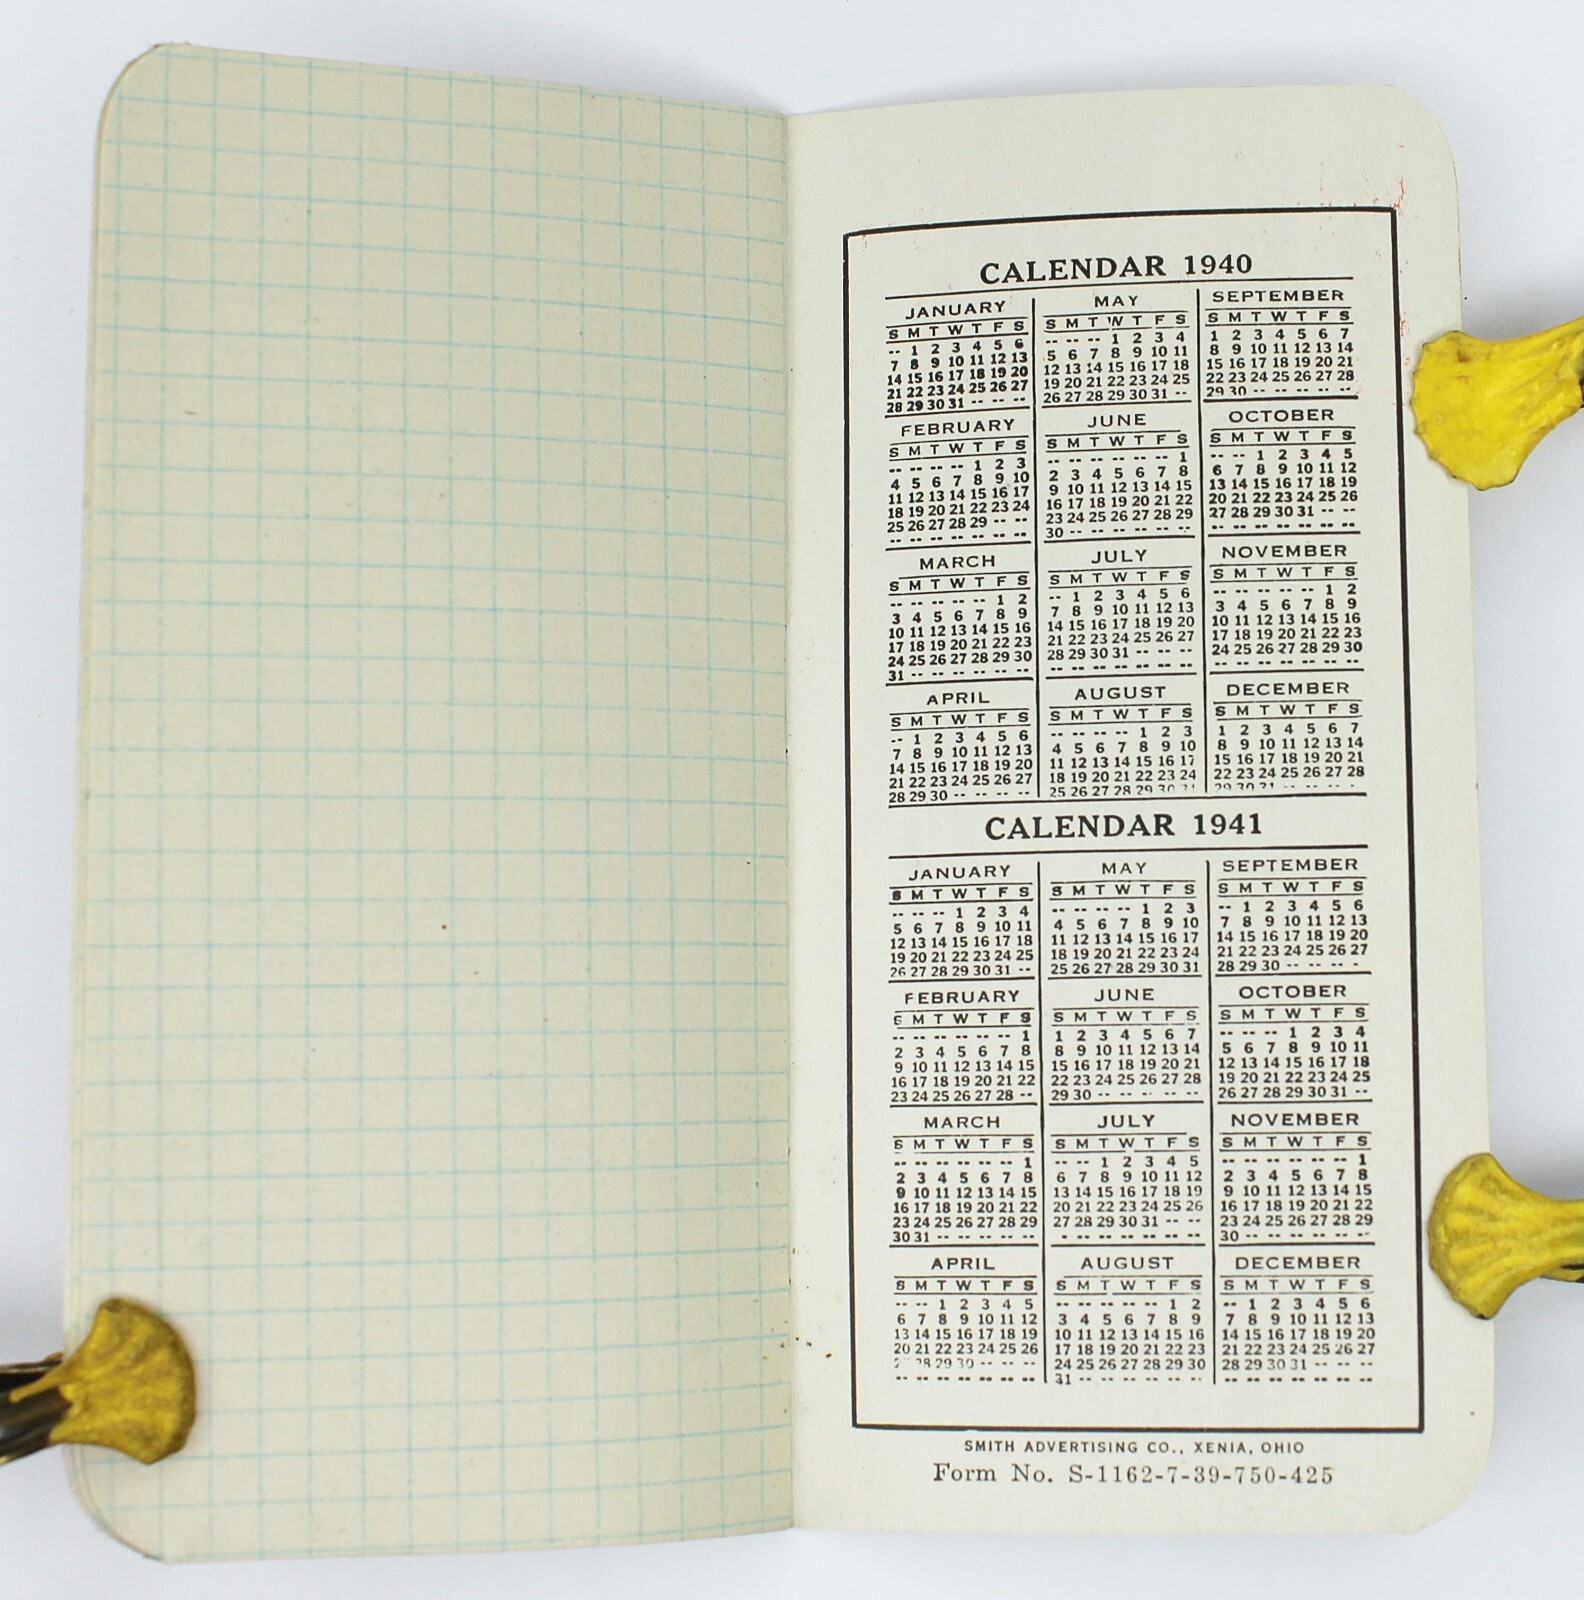 CALENDAR 1940
JANUARY
S M T W T F S
-- 1 2 3 4 5 6
7 8 9 10 11 12 13
14 15 16 17 18 19 20
21 22 23 24 25 26 27
28 29 30 31 -- -- --
FEBRUARY
S M T W T F S
-- -- -- -- 1 2 3
4 5 6 7 8 9 10
11 12 13 14 15 16 17
18 19 20 21 22 23 24
25 26 27 28 29 -- --
-- -- -- -- -- -- --
MARCH
S M T W T F S
-- -- -- -- -- 1 2
3 4 5 6 7 8 9
10 11 12 13 14 15 16
17 18 19 20 21 22 23
24 25 26 27 28 29 30
31 -- -- -- -- -- --
APRIL
S M T W T F S
-- 1 2 3 4 5 6
7 8 9 10 11 12 13
14 15 16 17 18 19 20
21 22 23 24 25 26 27
28 29 30 -- -- -- --
MAY
S M T W T F S
-- -- -- 1 2 3 4
5 6 7 8 9 10 11
12 13 14 15 16 17 18
19 20 21 22 23 24 25
26 27 28 29 30 31 --
JUNE
S M T W T F S
-- -- -- -- -- -- 1
2 3 4 5 6 7 8
9 10 11 12 13 14 15
16 17 18 19 20 21 22
23 24 25 26 27 28 29
30 -- -- -- -- -- --
JULY
S M T W T F S
-- 1 2 3 4 5 6
7 8 9 10 11 12 13
14 15 16 17 18 19 20
21 22 23 24 25 26 27
28 29 30 31 -- -- --
-- -- -- -- -- -- --
AUGUST
S M T W T F S
-- -- -- -- 1 2 3
4 5 6 7 8 9 10
11 12 13 14 15 16 17
18 19 20 21 22 23 24
25 26 27 28 29 30 31
SEPTEMBER
S M T W T F S
1 2 3 4 5 6 7
8 9 10 11 12 13 14
15 16 17 18 19 20 21
22 23 24 25 26 27 28
29 30 -- -- -- -- --
OCTOBER
S M T W T F S
-- -- 1 2 3 4 5
6 7 8 9 10 11 12
13 14 15 16 17 18 19
20 21 22 23 24 25 26
27 28 29 30 31 -- --
-- -- -- -- -- -- --
NOVEMBER
S M T W T F S
-- -- -- -- -- 1 2
3 4 5 6 7 8 9
10 11 12 13 14 15 16
17 18 19 20 21 22 23
24 25 26 27 28 29 30
-- -- -- -- -- -- --
DECEMBER
S M T W T F S
1 2 3 4 5 6 7
8 9 10 11 12 13 14
15 16 17 18 19 20 21
22 23 24 25 26 27 28
29 30 31 -- -- -- --
CALENDAR 1941
JANUARY
S M T W T F S
-- -- -- 1 2 3 4
5 6 7 8 9 10 11
12 13 14 15 16 17 18
19 20 21 22 23 24 25
26 27 28 29 30 31 --
FEBRUARY
S M T W T F S
-- -- -- -- -- -- 1
2 3 4 5 6 7 8
9 10 11 12 13 14 15
16 17 18 19 20 21 22
23 24 25 26 27 28 --
MARCH
S M T W T F S
-- -- -- -- -- -- 1
2 3 4 5 6 7 8
9 10 11 12 13 14 15
16 17 18 19 20 21 22
23 24 25 26 27 28 29
30 31 -- -- -- -- --
APRIL
S M T W T F S
-- -- 1 2 3 4 5
6 7 8 9 10 11 12
13 14 15 16 17 18 19
20 21 22 23 24 25 26
28 29 30 -- -- --
-- -- -- -- -- -- --
MAY
S M T W T F S
-- -- -- -- 1 2 3
4 5 6 7 8 9 10
11 12 13 14 15 16 17
18 19 20 21 22 23 24
25 26 27 28 29 30 31
JUNE
S M T W T F S
1 2 3 4 5 6 7
8 9 10 11 12 13 14
15 16 17 18 19 20 21
22 23 24 25 26 27 28
29 30 -- -- -- -- --
JULY
S M T W T F S
-- -- 1 2 3 4 5
6 7 8 9 10 11 12
13 14 15 16 17 18 19
20 21 22 23 24 25 26
27 28 29 30 31 -- --
-- -- -- -- -- -- --
AUGUST
S M T W T F S
-- -- -- -- -- 1 2
3 4 5 6 7 8 9
10 11 12 13 14 15 16
17 18 19 20 21 22 23
24 25 26 27 28 29 30
31 -- -- -- -- -- --
SEPTEMBER
S M T W T F S
-- 1 2 3 4 5 6
7 8 9 10 11 12 13
14 15 16 17 18 19 20
21 22 23 24 25 26 27
28 29 30 -- -- -- --
OCTOBER
S M T W T F S
-- -- -- 1 2 3 4
5 6 7 8 9 10 11
12 13 14 15 16 17 18
19 20 21 22 23 24 25
26 27 28 29 30 31 --
NOVEMBER
S M T W T F S
-- -- -- -- -- -- 1
2 3 4 5 6 7 8
9 10 11 12 13 14 15
16 17 18 19 20 21 22
23 24 25 26 27 28 29
30 -- -- -- -- -- --
DECEMBER
S M T W T F S
-- 1 2 3 4 5 6
7 8 9 10 11 12 13
14 15 16 17 18 19 20
21 22 23 24 25 26 27
28 29 30 31 -- -- --
-- -- -- -- -- -- --
SMITH ADVERTISING CO., XENIA, OHIO
Form No. S-1162-7-39-750-425